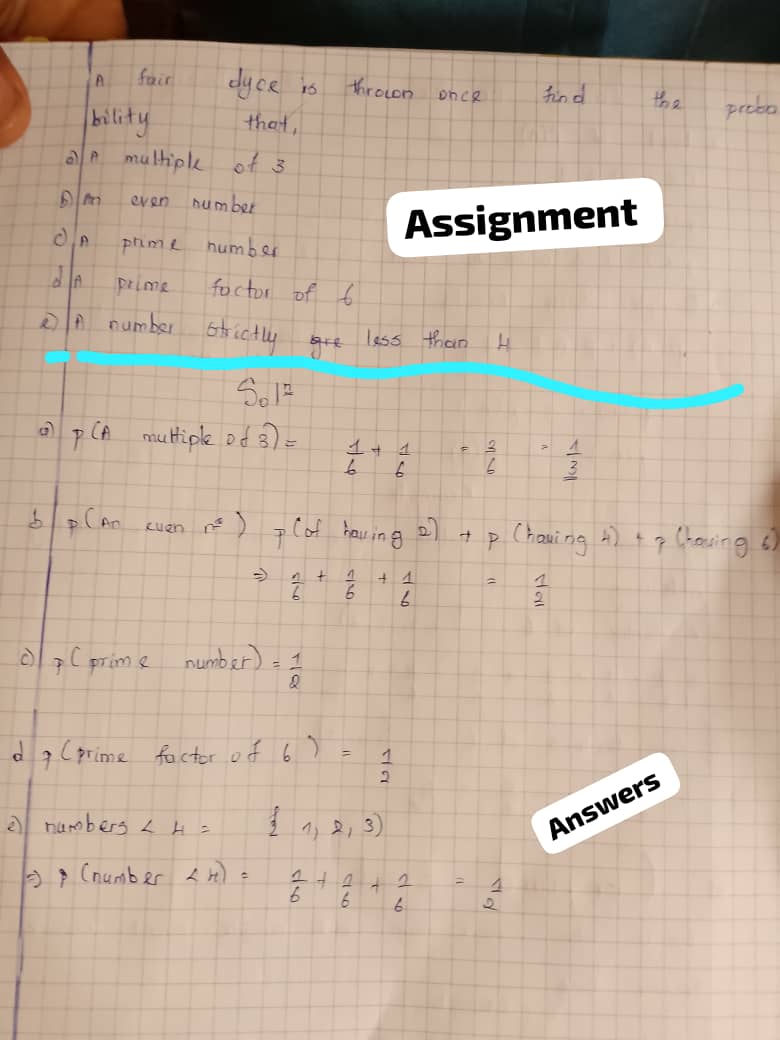 A fair dyce is thrown once find the proba
bility that,
a) A multiple of 3
b) An even number
Assignment
c) A prime number
d) A prime factor of 6
e) A number strictly gre less than 4
Solⁿ
a) p(A multiple of 3) = 1/6 + 1/6 = 2/6 = 1/3
b) p(An even nº) p(of having 2) + p(having 4) + p(having 6)
⇒ 1/6 + 1/6 + 1/6 = 1/2
c) p(prime number) = 1/2
d p(prime factor of 6) = 1/2
Answers
e) numbers < 4 = { 1, 2, 3)
⇒ p(number < 4) = 1/6 + 1/6 + 1/6 = 1/2